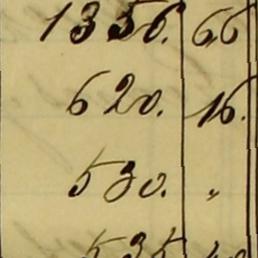 1356. 66
620. 16.
530. "
535